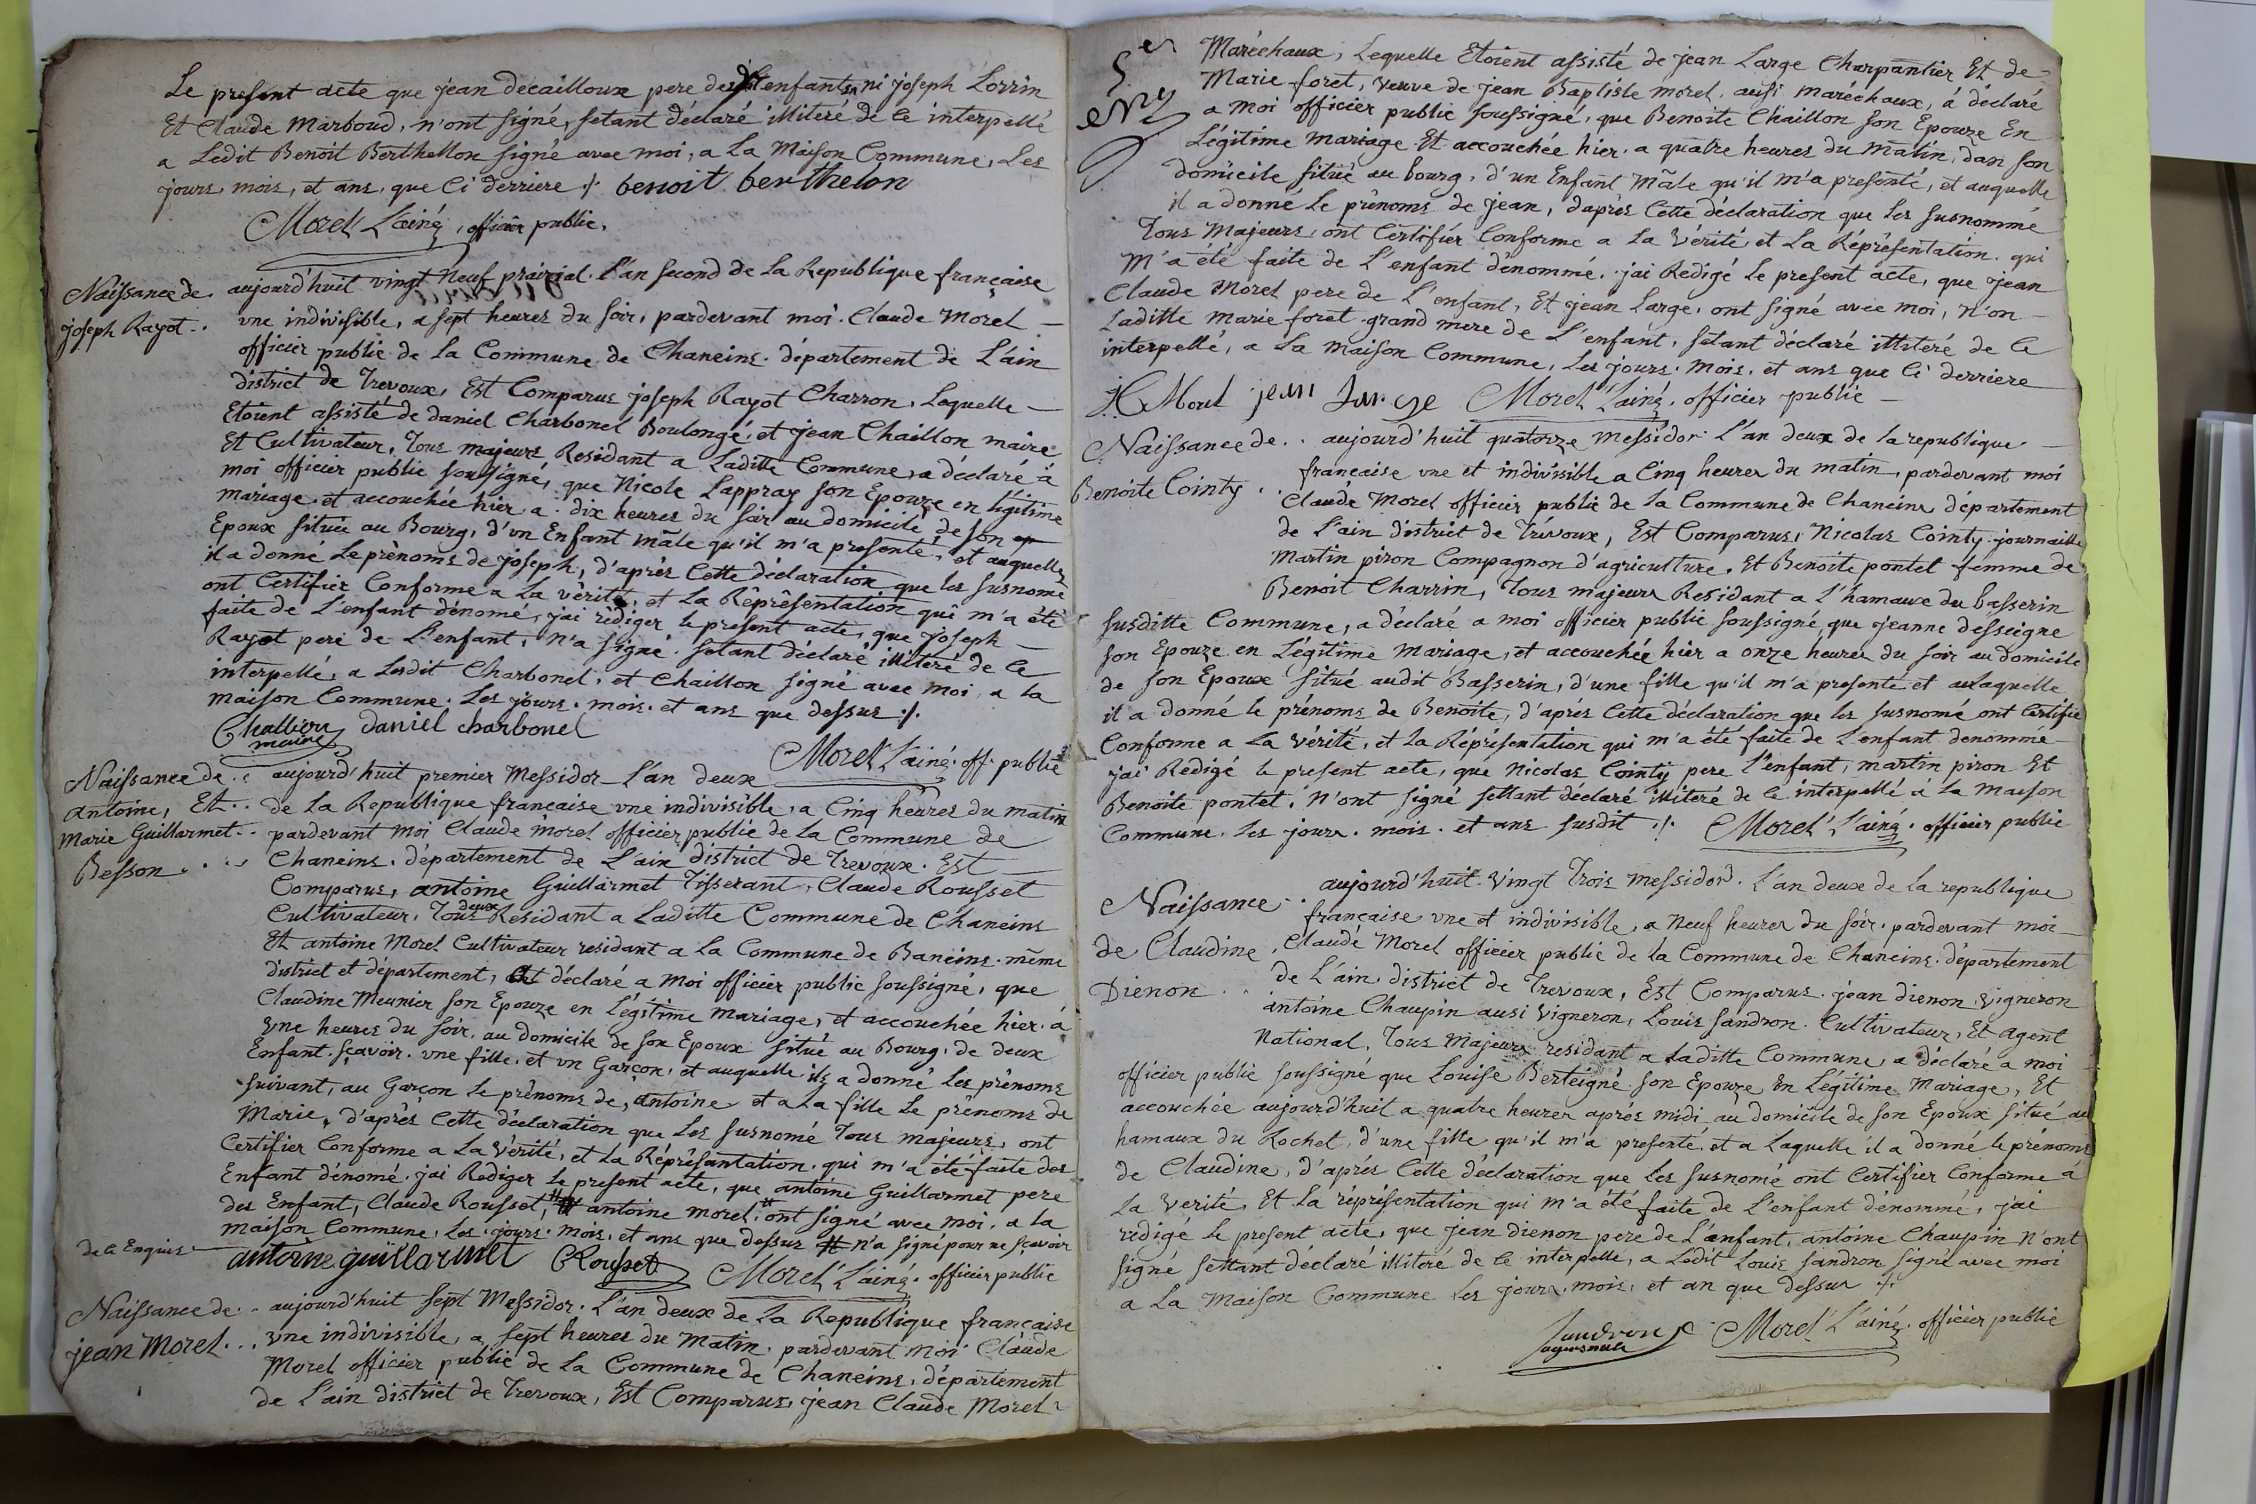 Le présent acte que jean decailloux pere des enfants, ni joseph Lorrin
Et Claude Marboud, n'ont signé, setant déclaré illiteré de ce interpellé
a Ledit Benoit Berthellon signé avec moi, a La Maison Commune, Les
jours, mois, et ans, que Ci derriere ./. benoit berthelon
Morel L'ainé, officier public.
Naissance de
joseph Rayot..
aujourd'huit vingt Neuf prairial. L'an second de La Republique française
vne indivisible, a sept heures du soir, pardevant moi. Claude Morel —
officier public de La Commune de Chaneins. département de L'ain
district de Trevoux, Est Comparus joseph Rayot Charron, Laquelle —
Etoient assisté de daniel Charbonel Boulongé, et jean Chaillon maire
Et Cultivateur, Tous majeurs Residant a Laditte Commune, a déclaré à
moi officier public soussigné, que Nicole Lappray son Epouze en légitime
mariage. et accouchée hier a. dix heures du soir au domicile de son
Epoux située au Bourg, d'vn Enfant mâle qu'il m'a presenté, et auquelle
il a donne Le prènoms de joseph, d'après Cette déclaration que les susnomé
ont Certifier Conforme a La vèrité, et La Rèprèsentation qui m'a èté
faite de L'enfant dénomé, jai rediger le present acte, que joseph —
Rayot pere de L'enfant, n'a signé. setant déclaré illiteré de ce
interpellé, a Ledit Charbonel, et Chaillon signé avec moi a la
maison Commune. Les jours. mois. et ans que dessus ./.
Challion daniel charbonel
maire
Morel L'ainé. off. public
Naissance de..
antoine, Et..
Marie Guillarmet..
Besson....
aujourd'huit premier Messidor L'an deux
de La Republique francaise vne indivisible, a Cinq heures du matin
pardevant moi Claude Morel officier public de La Commune de
Chaneins. département de L'ain district de Trevoux. Est —
Comparus, antoine Guillarmet Tisserant, Claude Rousset
Cultivateur, Tous deux Residant a Laditte Commune de Chaneins
Et antoine Morel Cultivateur residant a La Commune de Baneins. même
district et département, a déclaré a Moi officier public soussigné, que
Claudine Meunier son Epouze en Légitime Mariage, et accouchée hier à
vne heures du soir, au domicile de son Epoux situé au Bourg, de deux
Enfant. sçavoir. vne fille, et vn Garçon, et auquelle ils a donné Les prènoms
suivant, au Garçon Le prénoms de, antoine et a La fille Le prénoms de
Marie, d'après Cette déclaration que Les susnomé Tous majeurs, ont
Certifier Conforme a La Vérité, et La Réprésantation. qui m'a été faite des
Enfant dénomé. jai Rediger Le present acte, que antoine Guillarmet pere
des Enfant, Claude Rousset, # antoine morel, # ont signé avec moi. a la
maison Commune, Les jours. mois. et ans que dessus # n'a signé pour ne sçavoir
de ce Enquis —
antoine guillarmet CRousset Morel L'ainé. officier public
Naissance de..
jean Morel...
aujourd'huit sept Messidor. L'an deux de La Republique francaise
vne indivisible, a sept heures du Matin. pardevant moi Claude
Morel officier public de La Commune de Chaneins, département
de L'ain district de Trevoux, Est Comparus, jean Claude Morel
Maréchaux, Lequelle Etoient assisté de jean Large Charpantier Et de
Marie foret, veuve de jean Baptiste morel. ausi maréchaux, á déclaré
a moi officier public soussigné, que Benoite Chaillon son Epouze En
Légitime mariage Et accouchée hier. a quatre heures du Matin, dan son
domicile situé au bourg, d'un Enfant Mâle qu'il m'a presenté, et auquelle
il a donne Le prènoms de jean, daprès Cette déclaration que Les susnommé
Tous Majeurs, ont Certifier Conforme a La Vérité et La Réprésentation. qui
m'a été faite de L'enfant dénommé, jai Redigé Le present acte, que jean
Claude Morel pere de L'enfant, Et jean Large, ont signé avec moi, n'on —
Laditte Marie foret. grand mere de L'enfant, setant déclaré illiteré de Ce
interpellé, a La maison Commune, Les jours. Mois. et ans que Ci derriere
jean Large Morel L'ainé, officier public —
Naissance de..
Benoite Cointy.
aujourd'huit quatorze Messidor L'an deux de la republique —
francaise vne et indivisible a Cinq heures du matin, pardevant moi
Claude Morel officier public de La Commune de Chaneins département
de L'ain district de Trévoux, Est Comparus, Nicolas Cointy journaille
Martin piron Compagnon d'agriculture, Et Benoite pontet fèmme de
Benoit Charrin, Tous majeurs Residant a L'hamaux du basserin
susditte Commune, a déclaré a moi officier public soussigné, que jeanne desseigne
son Epouze en Légitime Mariage, et accouchée hier a onze heures du soir au domicile
de son Epoux situé audit Basserin, d'une fille qu'il m'a presenté et aulaquelle
il a donné le prénoms de Benoite, d'après Cette déclaration que les susnomé ont Certifié
Conforme a La Vérité, et La Réprésentation qui m'a été faite de L'enfant denommée
jai Redigé le present acte, que Nicolas Cointy pere l'enfant, martin piron Et
Benoite pontet, N'ont signé settant déclaré illiteré de ce interpellé á La maison
Commune. Les jours. mois. et ans susdit ./. Morel L'ainé. officier public
Naissance..
de Claudine
Dienon..
aujourd'huit. vingt Trois messidor. L'an deux de La republique
française vne et indivisible, a Neuf heures du soir. pardevant moi —
Claude Morel officier public de la Commune de Chaneins. département
de L'ain, district de Trevoux, Est Comparus. jean dienon vigneron
antoine Chaupin ausi vigneron, Louis sandron. Cultivateur, Et agent
national, Tous Majeurs residant a Laditte Commune, a déclaré a moi
officier public soussigné que Louise Berteigné son Epouze En Légitime Mariage, Et
accouchée aujourd'huit a quatre heures aprés midi au domicile de son Epoux situé au
hamaux du Rochet, d'une fille qu'il m'a presenté, et a Laquelle il a donné le prénoms
de Claudine, d'aprés Cette déclaration que Les susnomé ont Certifier Conforme á
La verité, Et La réprésentation qui m'a été faite de L'enfant dénommé, jai
redigé Le present acte, que jean dienon pere de L'enfant, antoine Chaupin n'ont
signé settant déclaré illiteré de ce interpellé, a Ledit Louis sandron signé avec moi
a La Maison Commune Les jours, mois, et an que dessus ./.
sandron Morel L'ainé. officier public